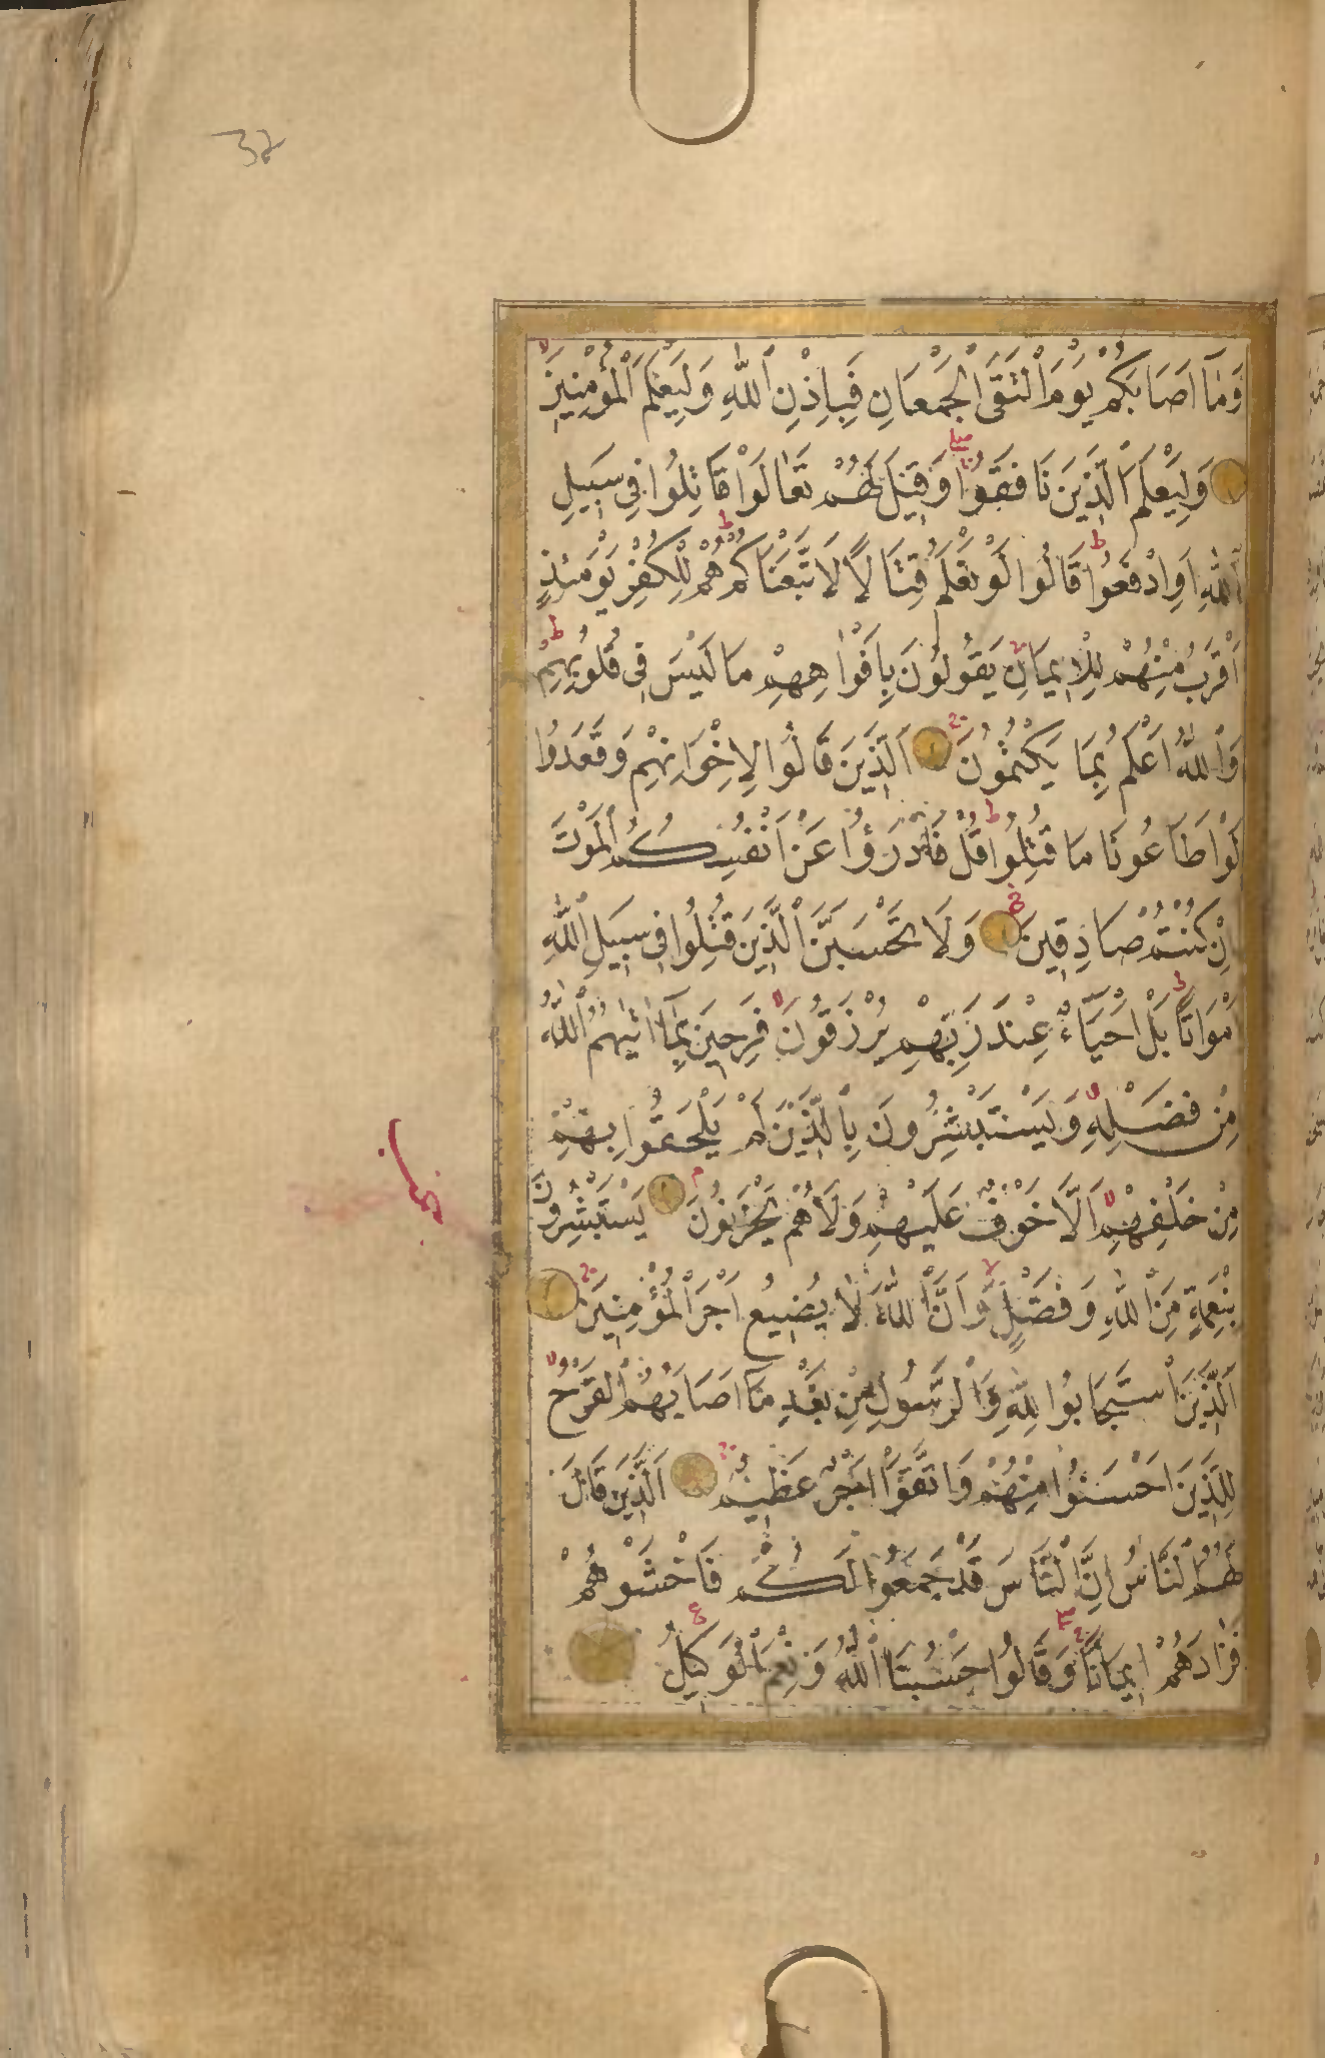 32
وَمَٓا اَصَابَكُمْ يَوْمَ الْتَقَى الْجَمْعَانِ فَبِاِذْنِ اللّٰهِ وَلِيَعْلَمَ الْمُؤْمِنِينَ
وَلِيَعْلَمَ الَّذِينَ نَافَقُوا وَقِيلَ لَهُمْ تَعَالَوْا قَاتِلُوا فِي سَبِيلِ
اللّٰهِ اَوِادْفَعُوا قَالُوا لَوْ نَعْلَمُ قِتَالًا لَاتَّبَعْنَاكُمْ هُمْ لِلْكُفْرِ يَوْمَئِذٍ
اَقْرَبُ مِنْهُمْ لِلْاِيمَانِ يَقُولُونَ بِاَفْوَاهِهِمْ مَا لَيْسَ فِي قُلُوبِهِمْ
وَاللّٰهُ اَعْلَمُ بِمَا يَكْتُمُونَ اَلَّذِينَ قَالُوا لِاِخْوَانِهِمْ وَقَعَدُوا
لَوْ اَطَاعُونَا مَا قُتِلُوا قُلْ فَادْرَؤُا عَنْ اَنْفُسِكُمُ الْمَوْتَ
اِنْ كُنْتُمْ صَادِقِينَ وَلَا تَحْسَبَنَّ الَّذِينَ قُتِلُوا فِي سَبِيلِ اللّٰهِ
اَمْوَاتًا بَلْ اَحْيَٓاءٌ عِنْدَ رَبِّهِمْ يُرْزَقُونَ فَرِحِينَ بِمَٓا اٰتٰيهُمُ اللّٰهُ
مِنْ فَضْلِهِ وَيَسْتَبْشِرُونَ بِالَّذِينَ لَمْ يَلْحَقُوا بِهِمْ
مِنْ خَلْفِهِمْ اَلَّا خَوْفٌ عَلَيْهِمْ وَلَا هُمْ يَحْزَنُونَ يَسْتَبْشِرُونَ
بِنِعْمَةٍ مِنَ اللّٰهِ وَفَضْلٍ وَاَنَّ اللّٰهَ لَا يُضِيعُ اَجْرَ الْمُؤْمِنِينَ
اَلَّذِينَ اسْتَجَابُوا لِلّٰهِ وَالرَّسُولِ مِنْ بَعْدِ مَٓا اَصَابَهُمُ الْقَرْحُ
لِلَّذِينَ اَحْسَنُوا مِنْهُمْ وَاتَّقَوْا اَجْرٌ عَظِيمٌ اَلَّذِينَ قَالَ
لَهُمُ النَّاسُ اِنَّ النَّاسَ قَدْ جَمَعُوا لَكُمْ فَاخْشَوْهُمْ
فَزَادَهُمْ اِيمَانًا وَقَالُوا حَسْبُنَا اللّٰهُ وَنِعْمَ الْوَكِيلُ